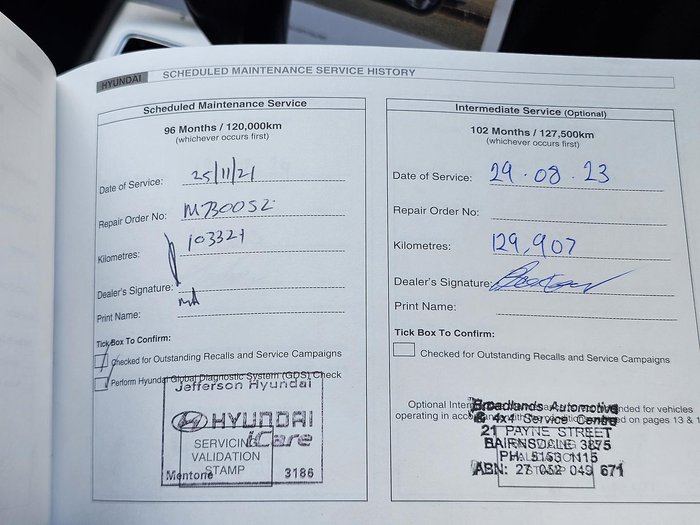 HYUNDAI SCHEDULED MAINTENANCE SERVICE HISTORY
Scheduled Maintenance Service
96 Months / 120,000km
(whichever occurs first)
Date of Service: 25/11/21
Repair Order No: M730052
Kilometres: 103321
Dealer's Signature:
Print Name:
Tick Box To Confirm:
Checked for Outstanding Recalls and Service Campaigns
Perform Hyundai Global Diagnostic System (GDS) Check
Jefferson Hyundai
HYUNDAI
iCare
SERVICING
VALIDATION
STAMP
Mentone 3186
Intermediate Service (Optional)
102 Months / 127,500km
(whichever occurs first)
Date of Service: 29.08.23
Repair Order No:
Kilometres: 129,907
Dealer's Signature:
Print Name:
Tick Box To Confirm:
Checked for Outstanding Recalls and Service Campaigns
Optional ended for vehicles
operating in on pages 13 & 1
Broadlands Automotive
& 4x4 Service Centre
21 PAYNE STREET
BAIRNSDALE 3875
PH: 5153 1115
ABN: 27 052 049 671